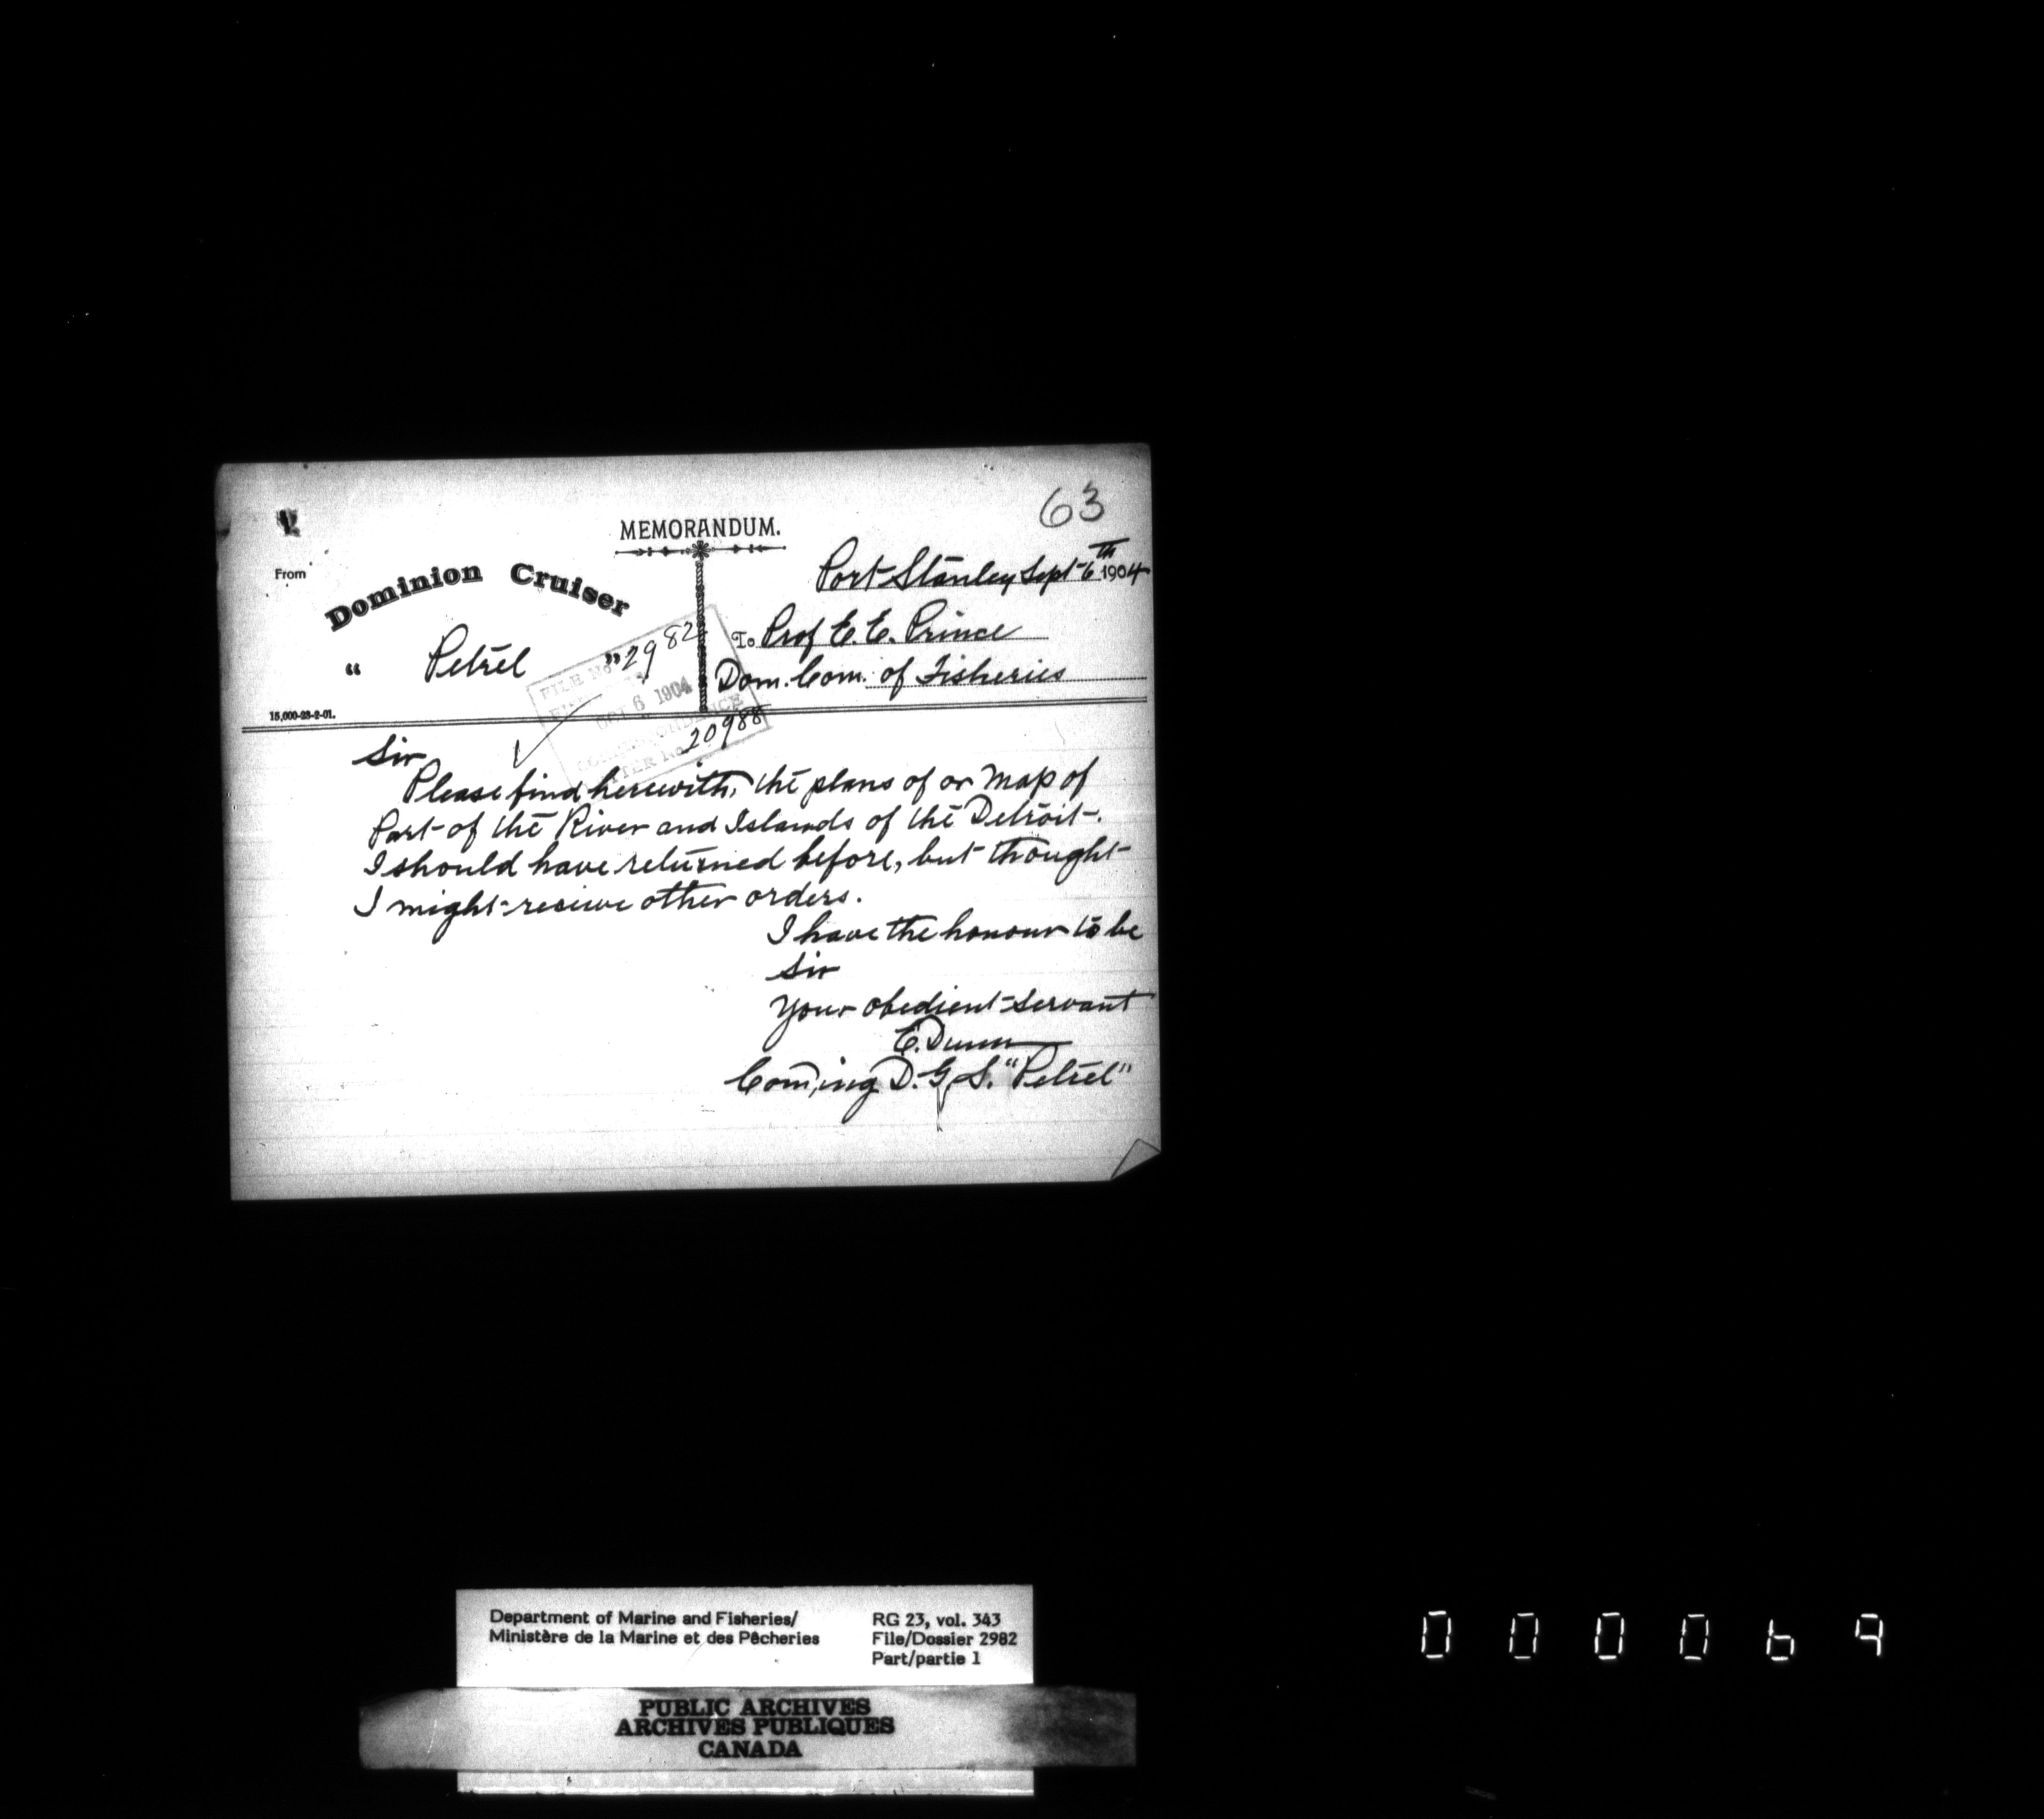 63
MEMORANDUM.
From
Dominion Cruiser
" Petrel "
15,000-23-2-01.
Port Stanley Sept 6th 1904
To Prof E. E. Prince
Dom. Com. of Fisheries
FILE No. 2982
OCT 6 1904
20988
Sir
Please find herewith, the plans of or Map of
Part of the River and Islands of the Detroit.
I should have returned before, but thought
I might receive other orders.
I have the honour to be
Sir
Your obedient servant
E. Dunn
Com,ing D. G. S. "Petrel"
Department of Marine and Fisheries/
Ministère de la Marine et des Pêcheries
RG 23, vol. 343
File/Dossier 2982
Part/partie 1
PUBLIC ARCHIVES
ARCHIVES PUBLIQUES
CANADA
000069